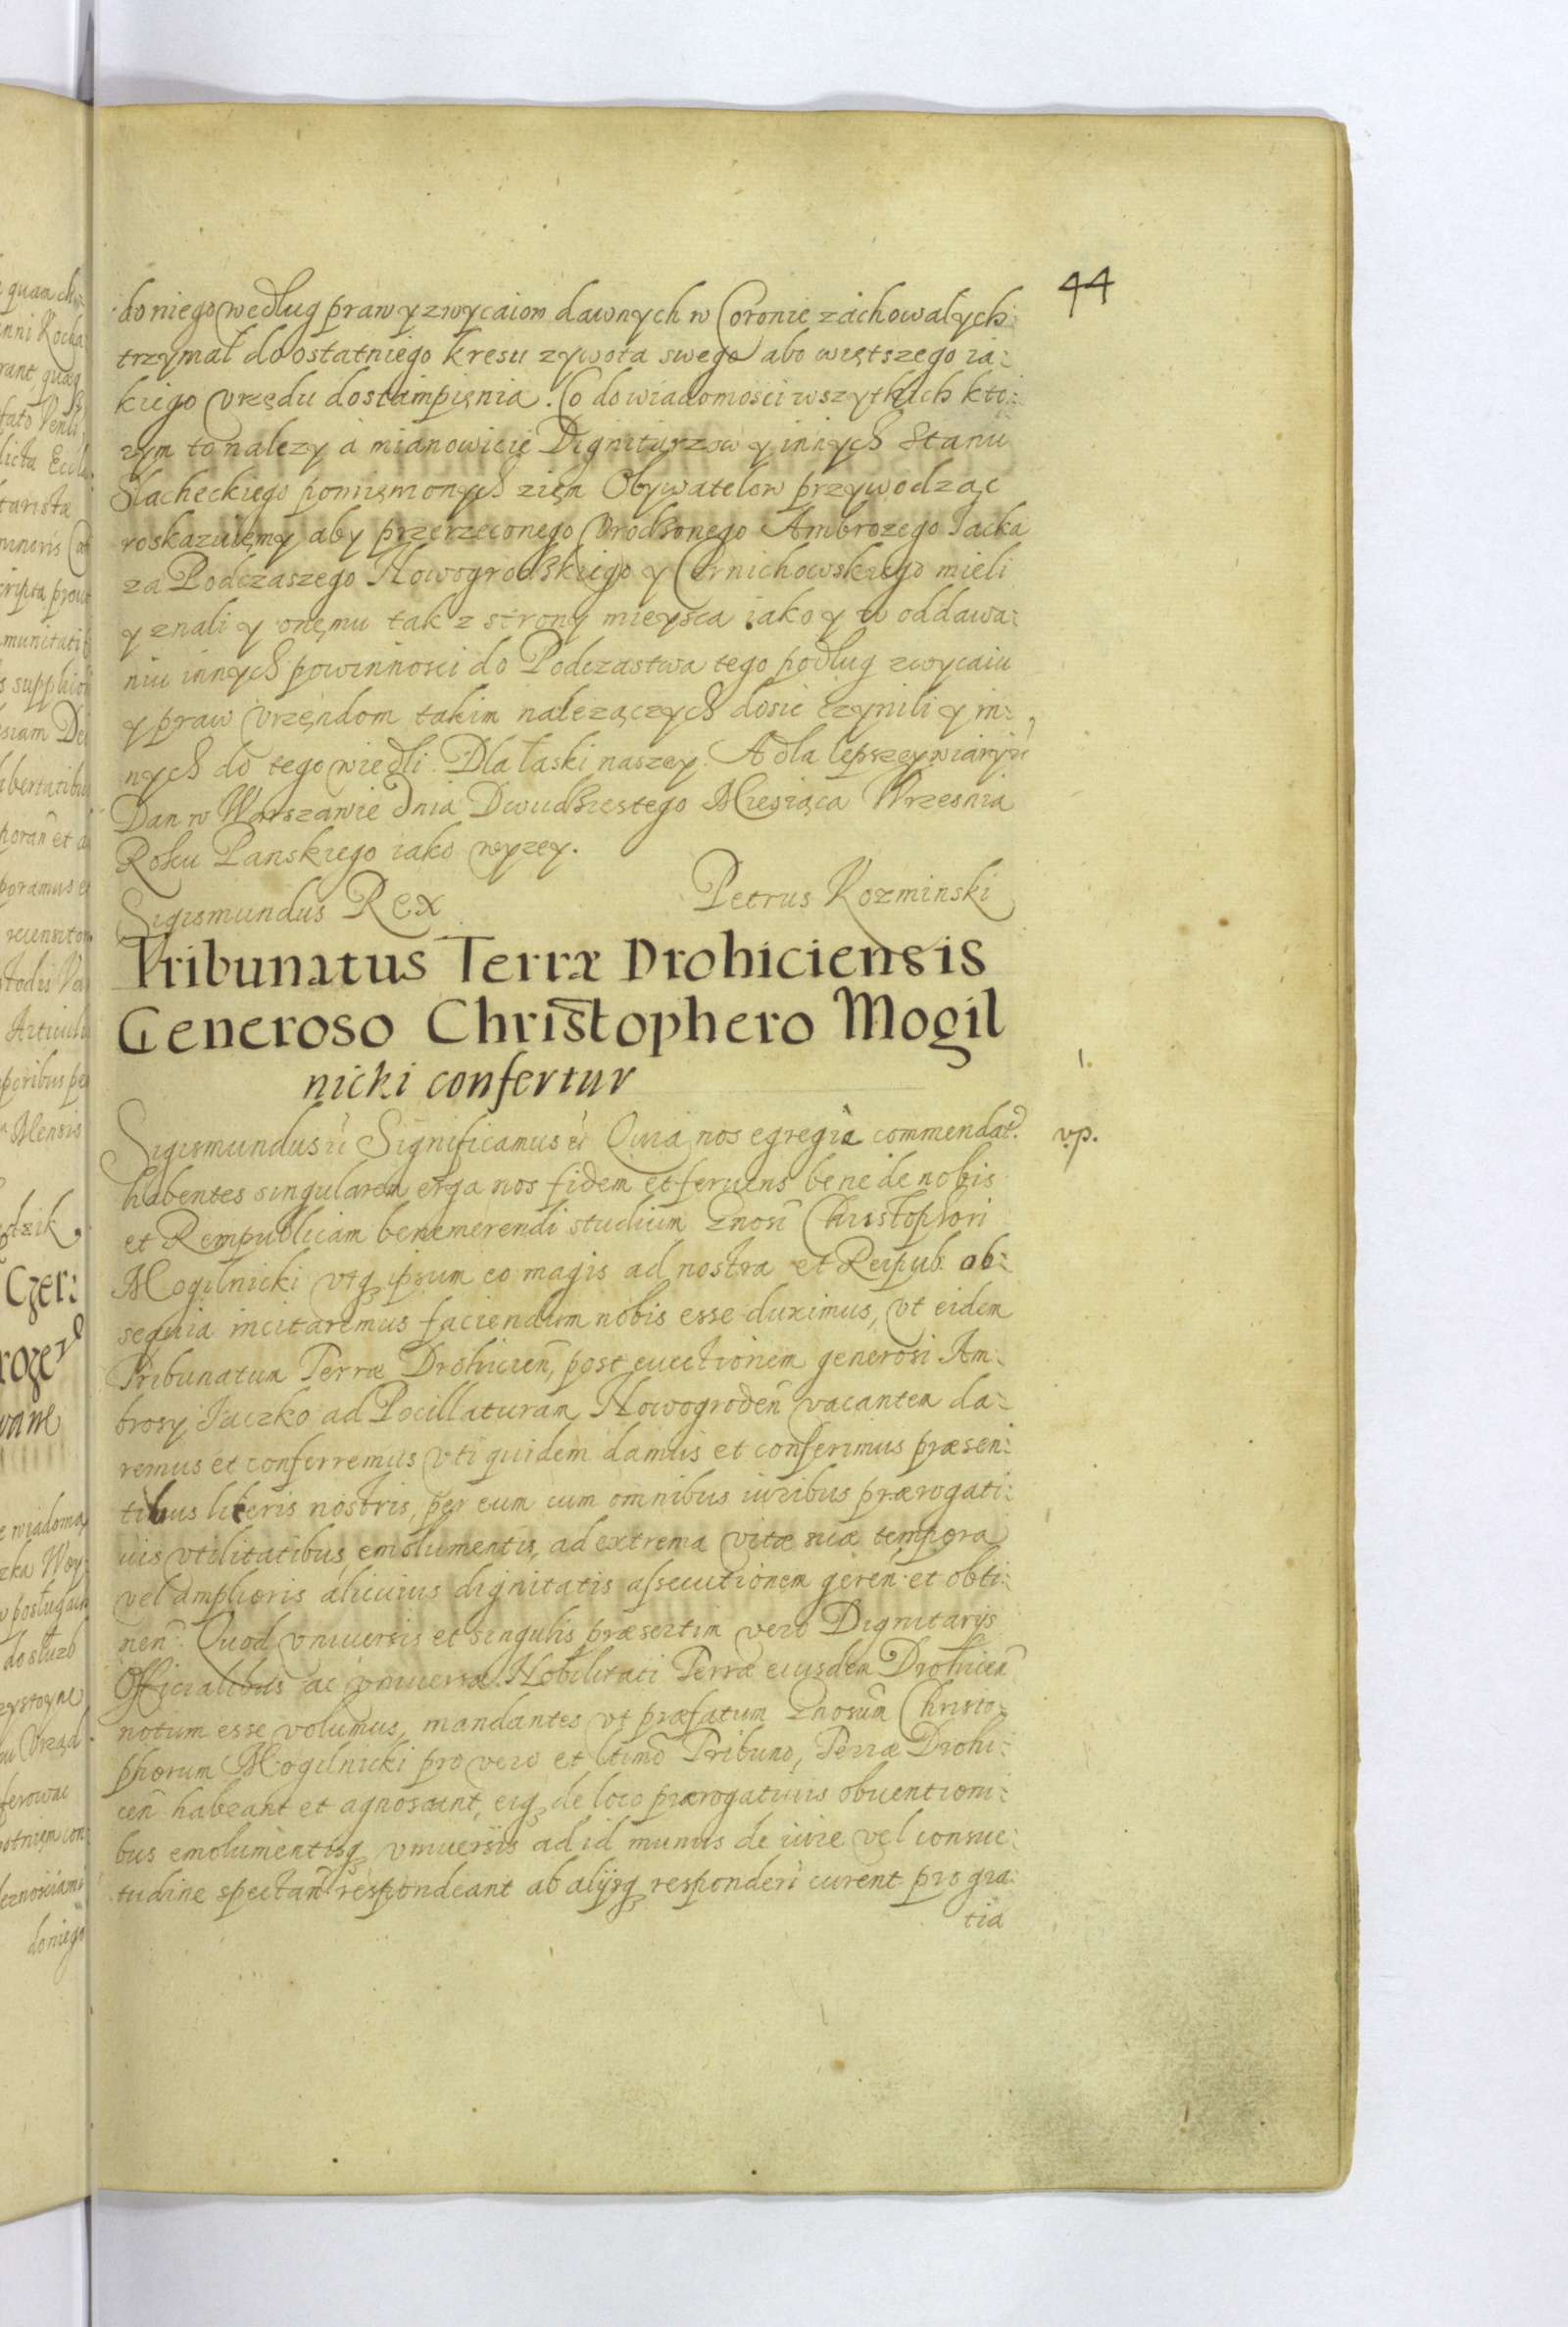 44
do niego według praw y zwycaiow dawnych w Coronie zachowalych
trzymał do ostatniego kresu zywota swego abo więtszego ia:
kiego vrzędu dostąmpięnia. Co do wiadomosci wszytkich kto:
rym to nalezy à mianowicię Dignitarzow y innych Stanu
Slacheckiego pomięnionych zięm Obywatelow przywodząc
roskazuięmy aby przerzeconego Vrodzonego Ambrozego Jacka
za Podczaszego Nowogrodskiego y Cernichowskiego mieli
y znali y onęmu tak z strony mieysca iako y w oddawa:
niu innych powinnosci do Podczastwa tego podług zwycaiu
y praw vrzęndom takim nalezączych dosic czynili y in:
nych do tego wiedli. Dla łaski naszey. A dla lepszey wiary ů
Dan w Warszawie dnia Dwudziestego Miesiąca Wrzesnia
Roku Panskiego iako wyzey.
Sigismundus Rex Petrus Kozminski
Tribunatus Terræ Drohiciensis
Generoso Christophero Mogil
nicki confertur
1.
Sigismundus ů Significamus ů Quia nos egregiè commendat.
vp.
habentes singularem erga nos fidem et feruens bene de nobis
et Rempublicam benemerendi studium Gnosi Christophori
Mogilnicki vtq ipsum eo magis ad nostra et Reipub. ob:
sequia incitaremus faciendum nobis esse duximus, vt eidem
Tribunatum Terræ Drohicien, post euectionem generosi Am:
brosy Jaczko ad Pocillaturam Nowogroden vacantem da:
remus et conferremus vti quidem damus et conferimus præsen:
tibus literis nostris, per eum cum omnibus iuribus prærogati:
uis vtilitatibus emolumentis, ad extrema vitæ suæ tempora
vel amplioris alicuius dignitatis assecutionem geren: et obti:
nen: Quod vniuersis et singulis præsertim vero Dignitarys
Officialibus ac vniuersæ Nobilitati Terræ eiusdem Drohicen
notum esse volumus, mandantes vt præfatum Gnosum Christo:
phorum Mogilnicki pro vero et ltimo Tribuno, Terræ Drohi:
cen habeant et agnoscant, eiq de loco prærogatiuis obuentioni:
bus emolumentisq vniuersis ad id munus de iure vel consue:
tudine spectan respondeant ab alijsq responderi curent pro gra:
tia